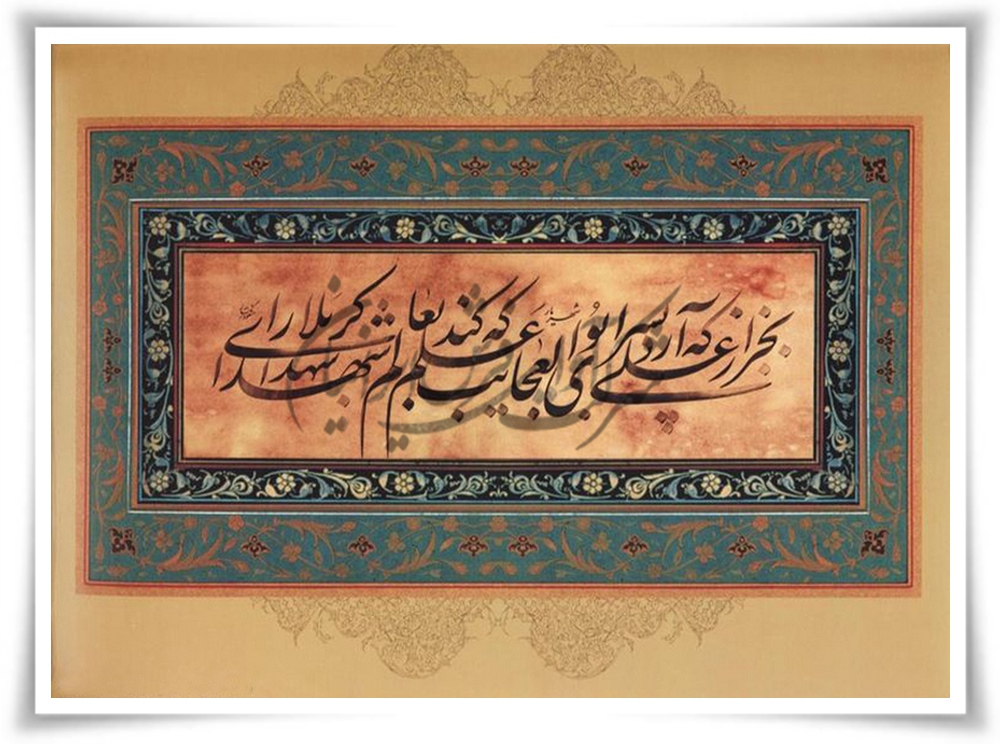 بجز از علی که آرد پسری ابوالعجایب که علم کند بعالم شهدای کربلا را
شهریار